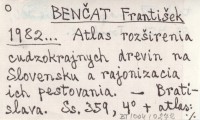 BENČAT František
1982... Atlas rozšírenia
cudzokrajných drevín na
Slovensku a rajonizacia
ich pestovania. — Brati-
slava. Ss. 359, 4° + atlas.